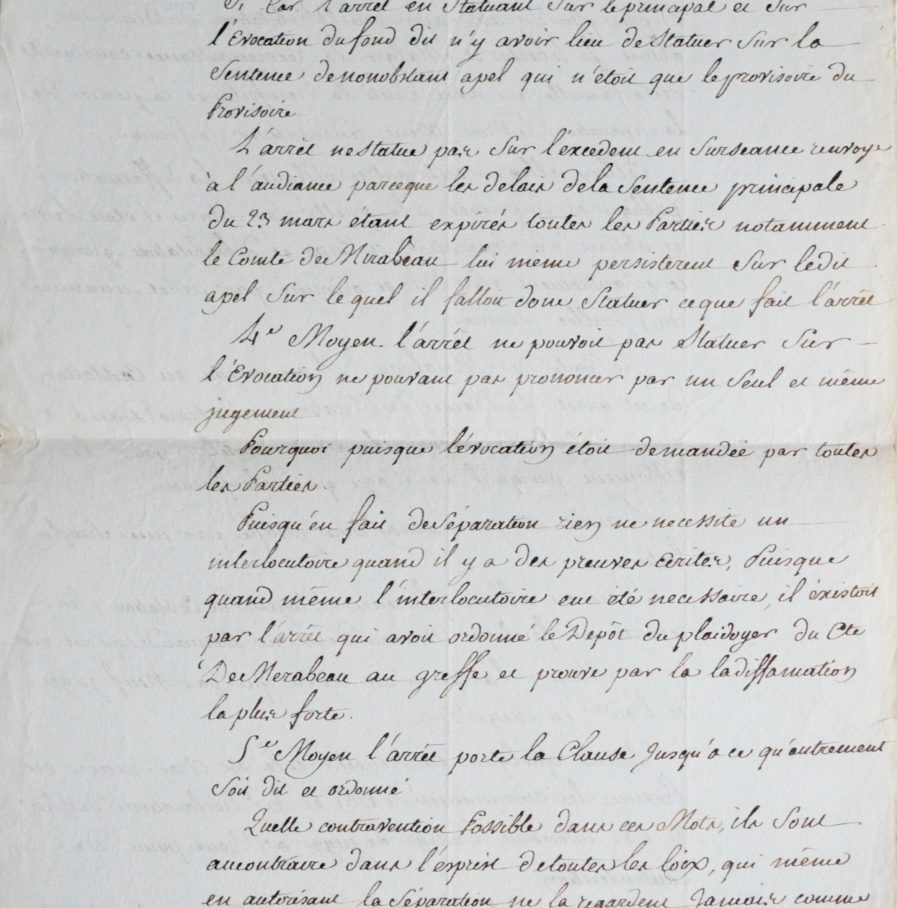 Par l'arrêt en Statuant Sur le principal et Sur
l'Evocation du fond dit n'y avoir lieu de Statuer Sur la
Sentence de nonobstant apel qui n'étoit que le provisoire du
Provisoire
L'arrêt ne Statue pas Sur l'excedent en Surseance renvoyé
à l'audiance parceque les delais de la Sentence principale
du 23 mars étant expirés toutes les Parties notamment
le Comte de Mirabeau lui meme persisterent Sur ledit
apel Sur le quel il falloit donc Statuer ce que fait l'arrêt
4e Moyen l'arrêt ne pouvoit pas Statuer Sur
l'Evocation ne pouvant pas prononcer par un Seul et même
jugement
Pourquoi puisque l'évocation étoit demandée par toutes
les Parties.
Puisqu'en fait de Séparation rien ne necessite un
interlocutoire quand il y a des preuves Ecrites, Puisque
quand même l'interlocutoire eut été necessaire, il éxistoit
par l'arrêt qui avoit ordonné le Depôt du plaidoyer du Cte
De Merabeau au greffe et prouve par la la diffamation
la plus forte.
5e Moyen l'arrêt porte la Clause jusqu'a ce qu'autrement
Soit dit et ordonné
Quelle contravention Possible dans ces Mots, ils Sont
au contraire dans l'esprit de toutes les loix, qui même
en autorisant la Séparation ne la regardent Jamais comme